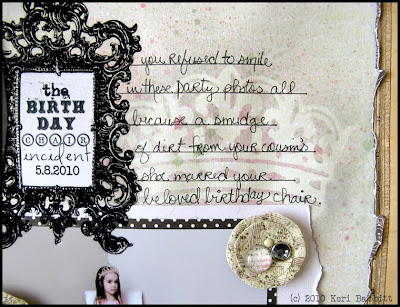 the
BIRTH
DAY
CHAIR
incident
5.8.2010
you refused to smile
in these party photos all
because a smudge
of dirt from your cousin's
shoe marred your
beloved birthday chair.
(c) 2010 Keri Babbitt